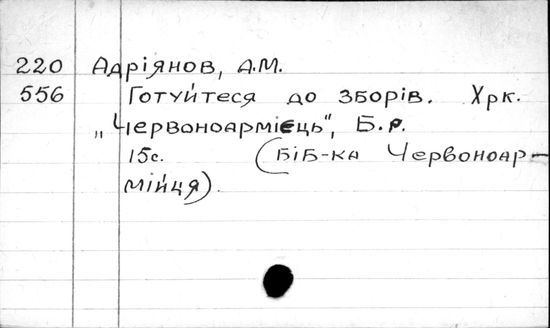 220 Адріянов, А.М.
556 Готуйтеся до зборів. Хрк.
„Червоноармієць", Б.р.
15с. (Біб-ка Червоноар-
мійця).